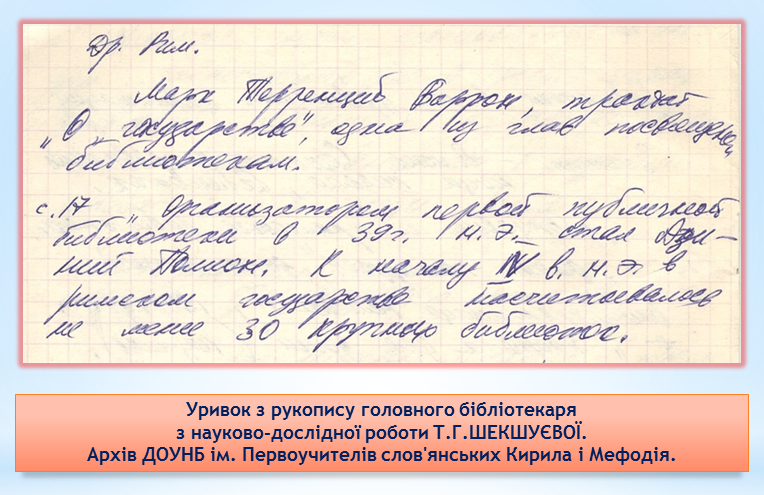 Др. Рим.
Марк Терренций Варрон, трактат
„О „государстве", одна из глав посвящена
библиотекам.
с. 17 „Организатором первой публичной
библиотеки в 39 г. н.э. стал Ази-
ний Полион. К началу IV в. н.э. в
римском государстве насчитывалось
не менее 30 крупных библиотек.
Уривок з рукопису головного бібліотекаря
з науково-дослідної роботи Т.Г.ШЕКШУЄВОЇ.
Архів ДОУНБ ім. Первоучителів слов'янських Кирила і Мефодія.